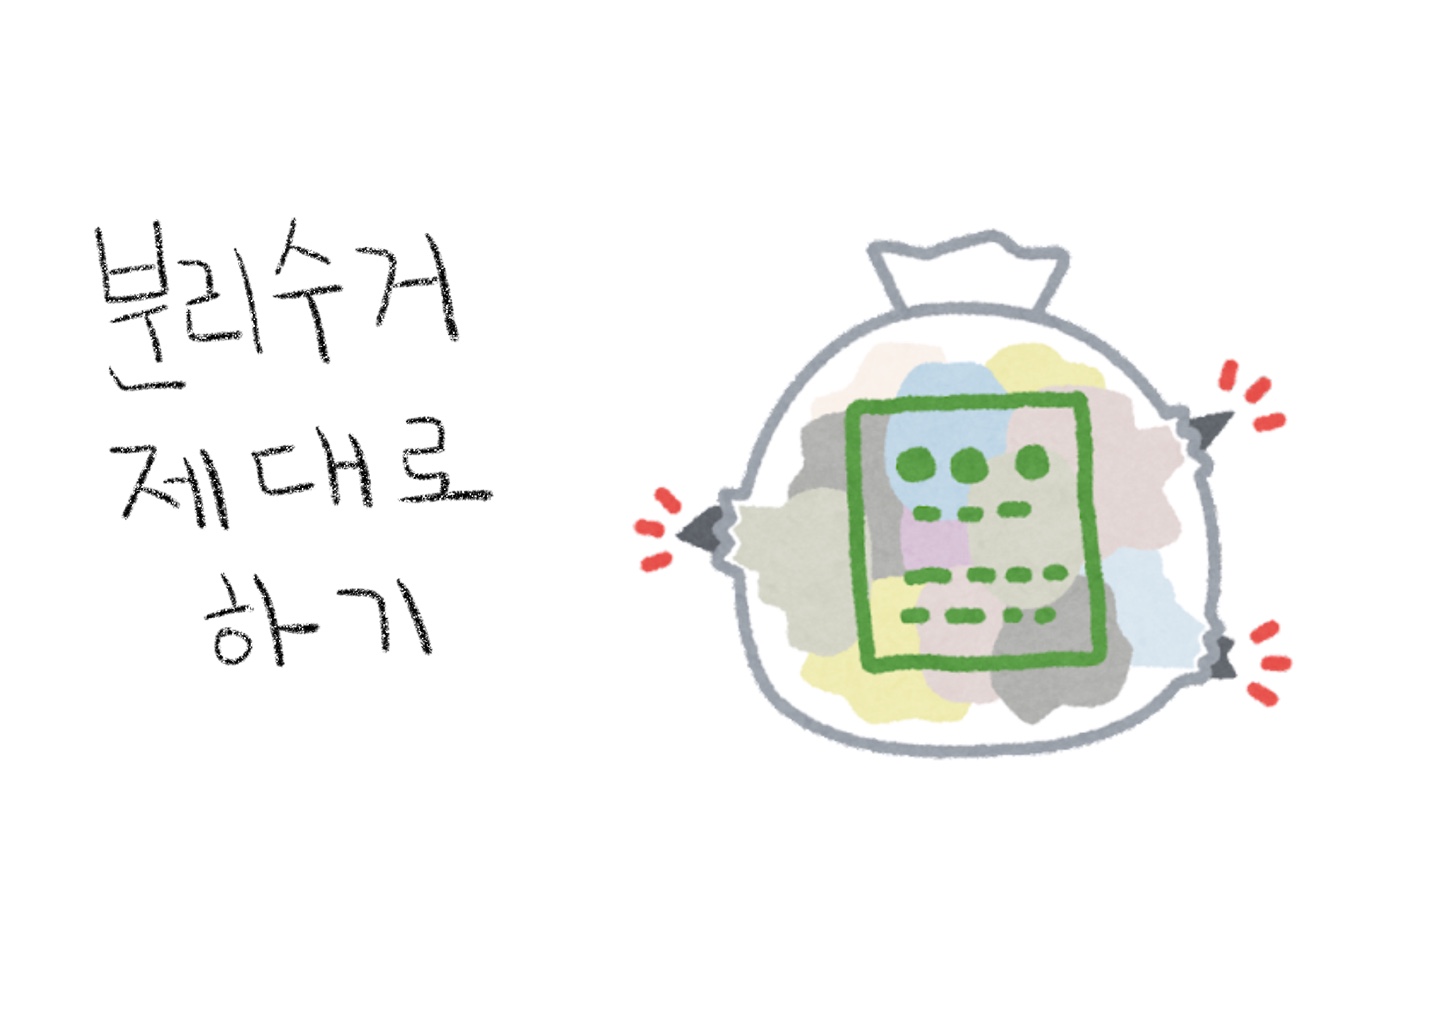 분리수거
제대로
하기